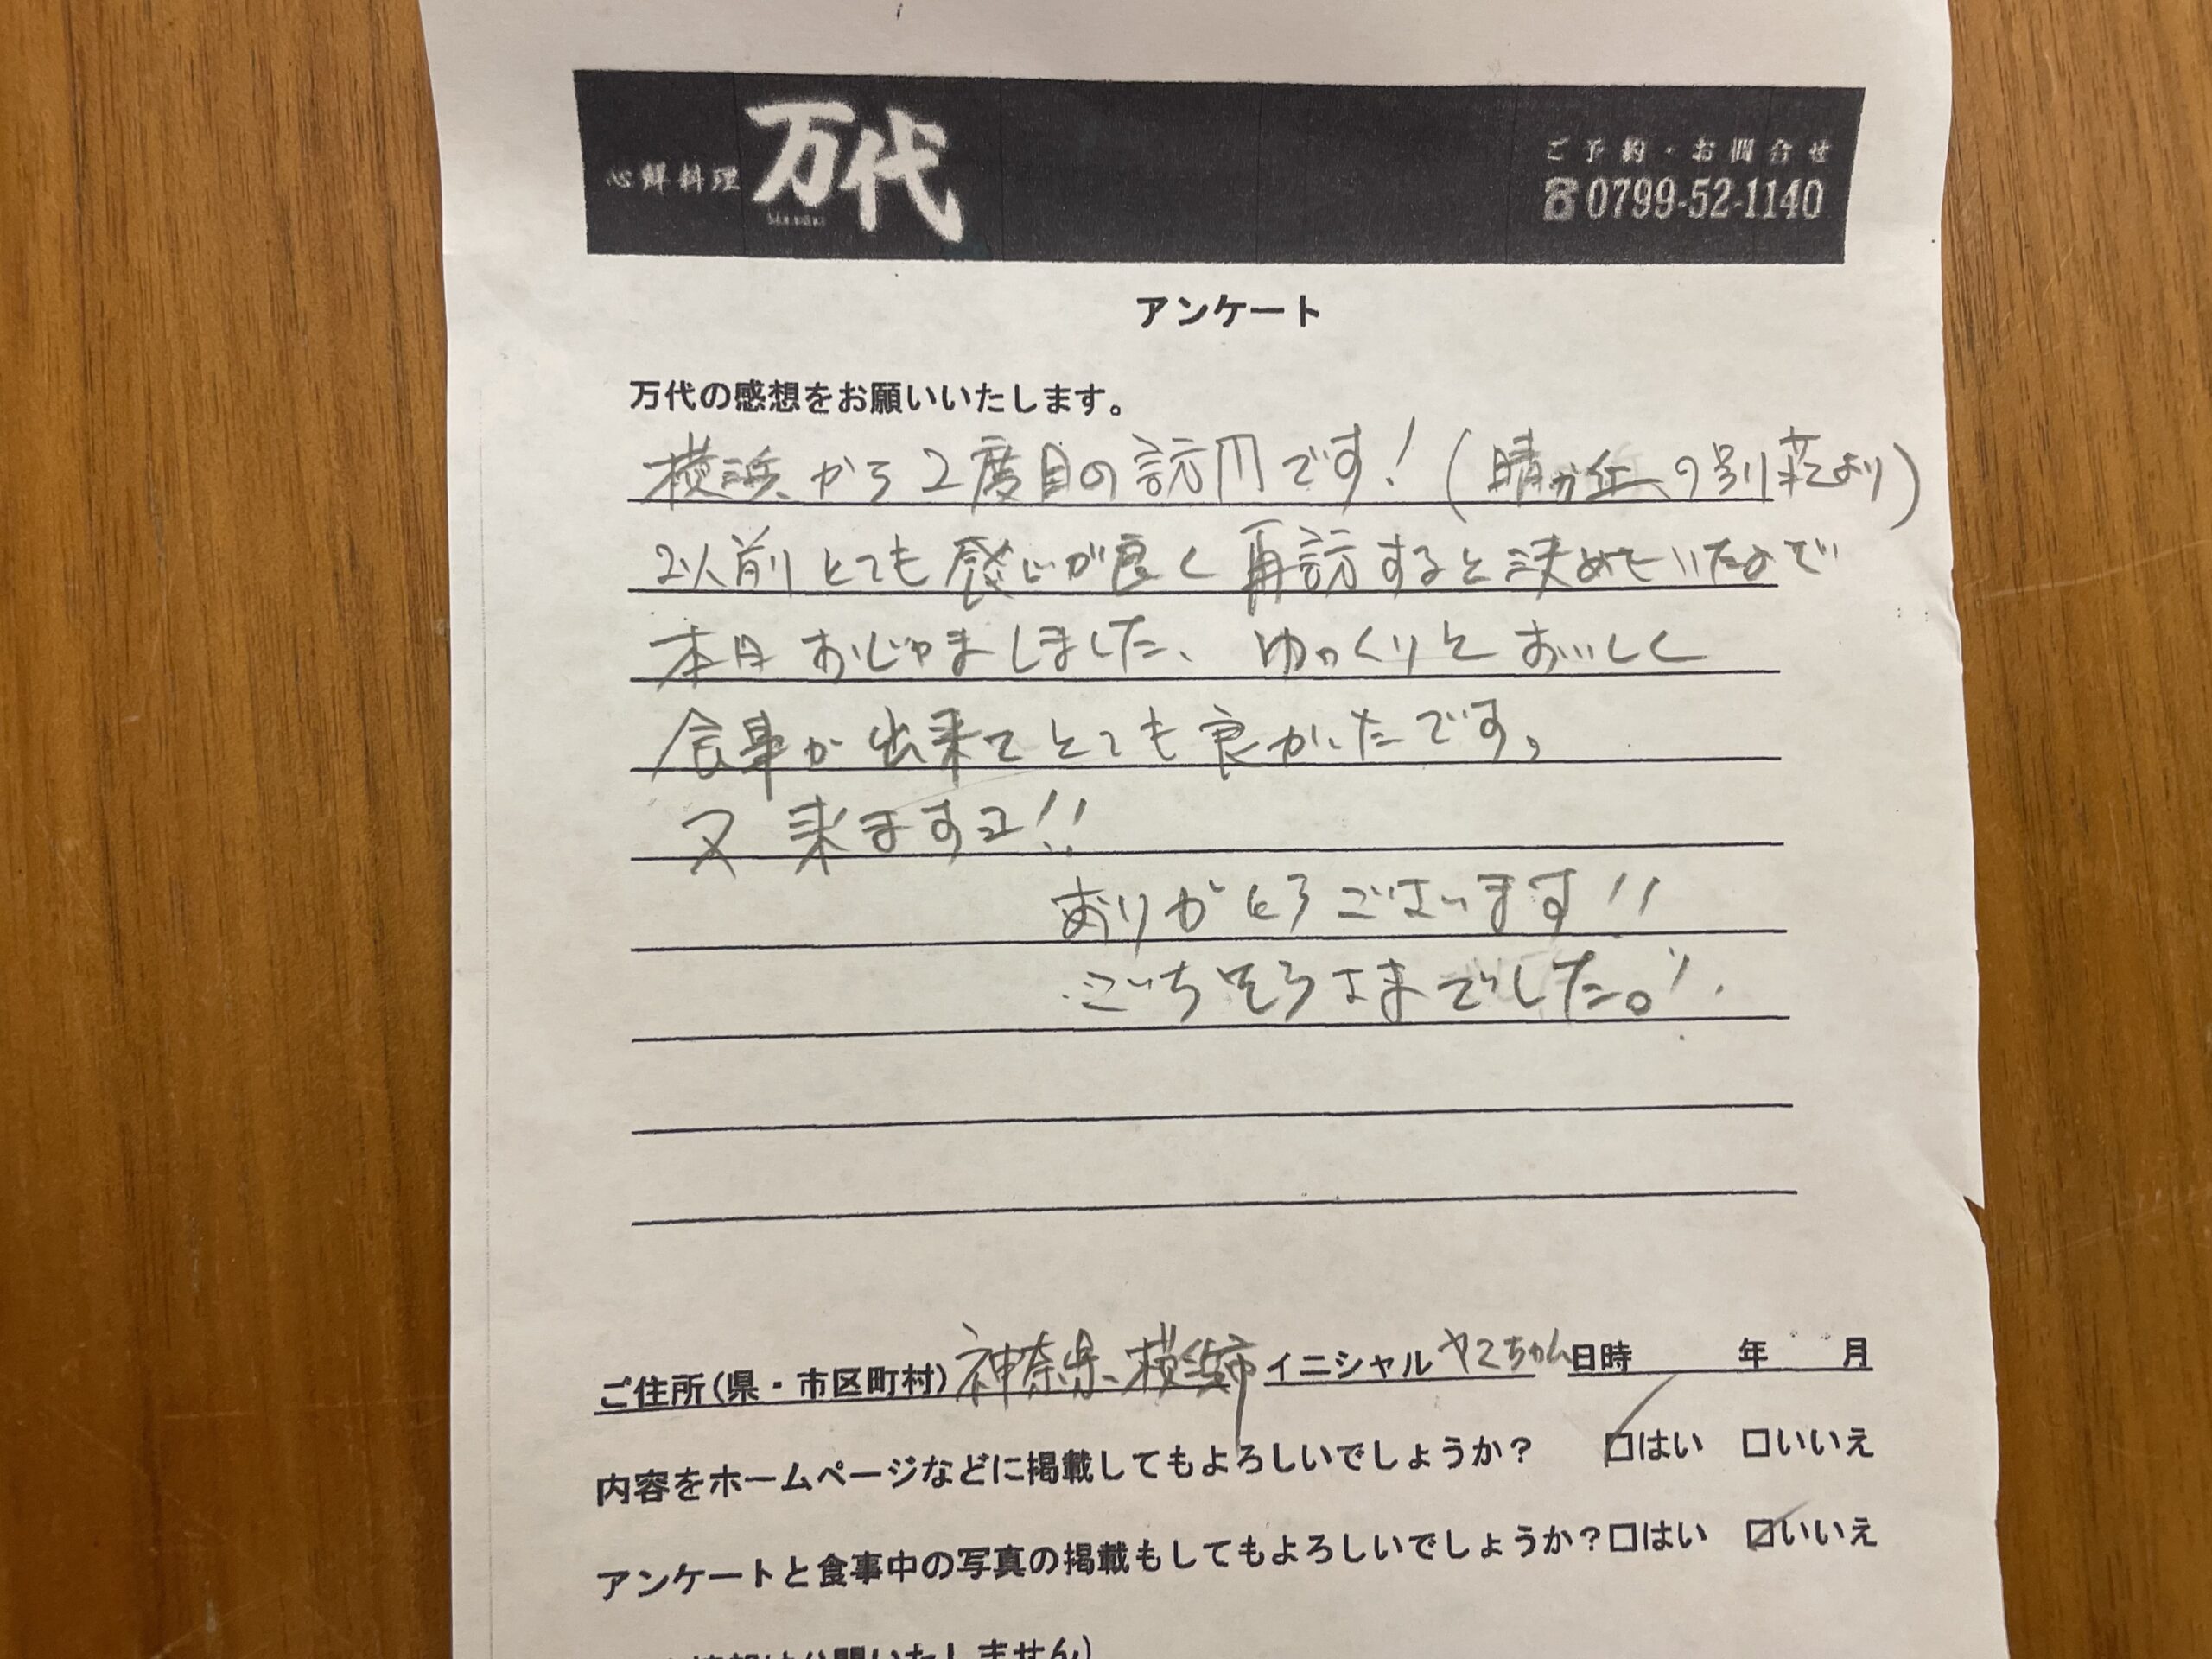 心鮮料理 万代
ご予約・お問合せ
☎0799-52-1140
アンケート
万代の感想をお願いいたします。
横浜から2度目の訪問です!(晴が丘の別荘より)
以前とても感じが良く再訪すると決めていたので
本日おじゃましました、ゆっくりとおいしく
食事が出来てとても良かったです。
又来ますヨ!!
ありがとうございます!!
ごちそうさまでした。!!
ご住所(県・市区町村)神奈県、横浜市 イニシャル ヤマちゃん 日時 年 月
内容をホームページなどに掲載してもよろしいでしょうか? ☑はい □いいえ
アンケートと食事中の写真の掲載もしてもよろしいでしょうか?□はい ☑いいえ
公開いたしません)